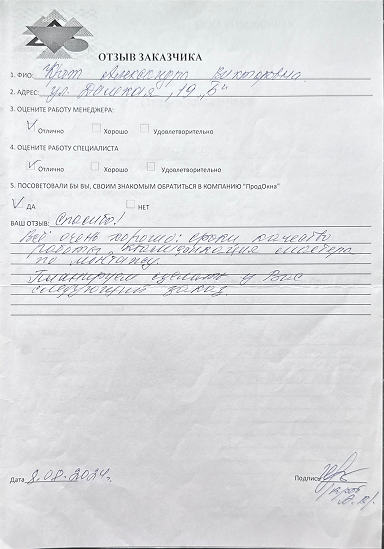 ОТЗЫВ ЗАКАЗЧИКА
1. ФИО: Александра Викторовна
2. АДРЕС: ул. Донская, 19 "Б"
3. ОЦЕНИТЕ РАБОТУ МЕНЕДЖЕРА:
Отлично Хорошо Удовлетворительно
4. ОЦЕНИТЕ РАБОТУ СПЕЦИАЛИСТА
Отлично Хорошо Удовлетворительно
5. ПОСОВЕТОВАЛИ БЫ ВЫ, СВОИМ ЗНАКОМЫМ ОБРАТИТЬСЯ В КОМПАНИЮ "ПродОкна"
ДА НЕТ
ВАШ ОТЗЫВ: Спасибо!
Всё очень хорошо: сроки, качество
работы, квалификация мастера
по монтажу.
Планируем сделать у Вас
следующий заказ.
Дата 8.08.2024г. Подпись